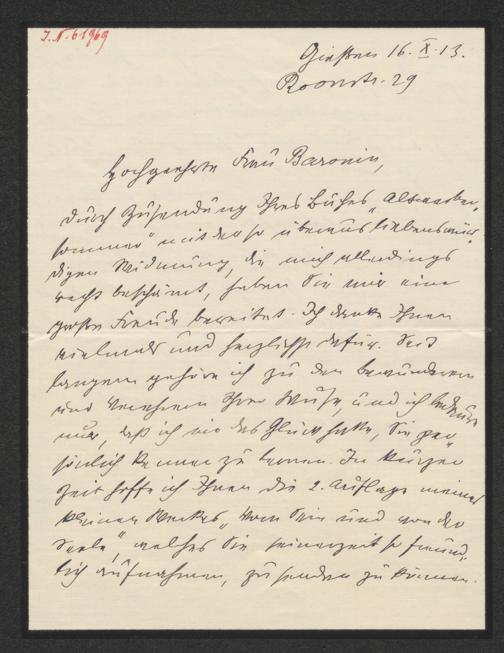 I. N. 61969
Gießen 16. X. 13.
Roonstr. 29
Hochgeehrte Frau Baronin,
durch Zusendung Ihres Buches „Altweiber-
sommer" mit der so überaus liebenswür-
digen Widmung, die mich allerdings
recht beschämt, haben Sie mir eine
große Freude bereitet. Ich danke Ihnen
vielmals und herzlichst dafür. Seit
langem gehöre ich zu den Bewunderern
und Verehrern Ihrer Muse, und ich bedaure
nur, daß ich nie das Glück hatte, Sie per-
sönlich kennen zu lernen. In kurzer
Zeit hoffe ich Ihnen die 2. Auflage meines
kleinen Werkes „Vom Sein und von der
Seele", welches Sie seinerzeit so freund-
lich aufnahmen, zusenden zu können.